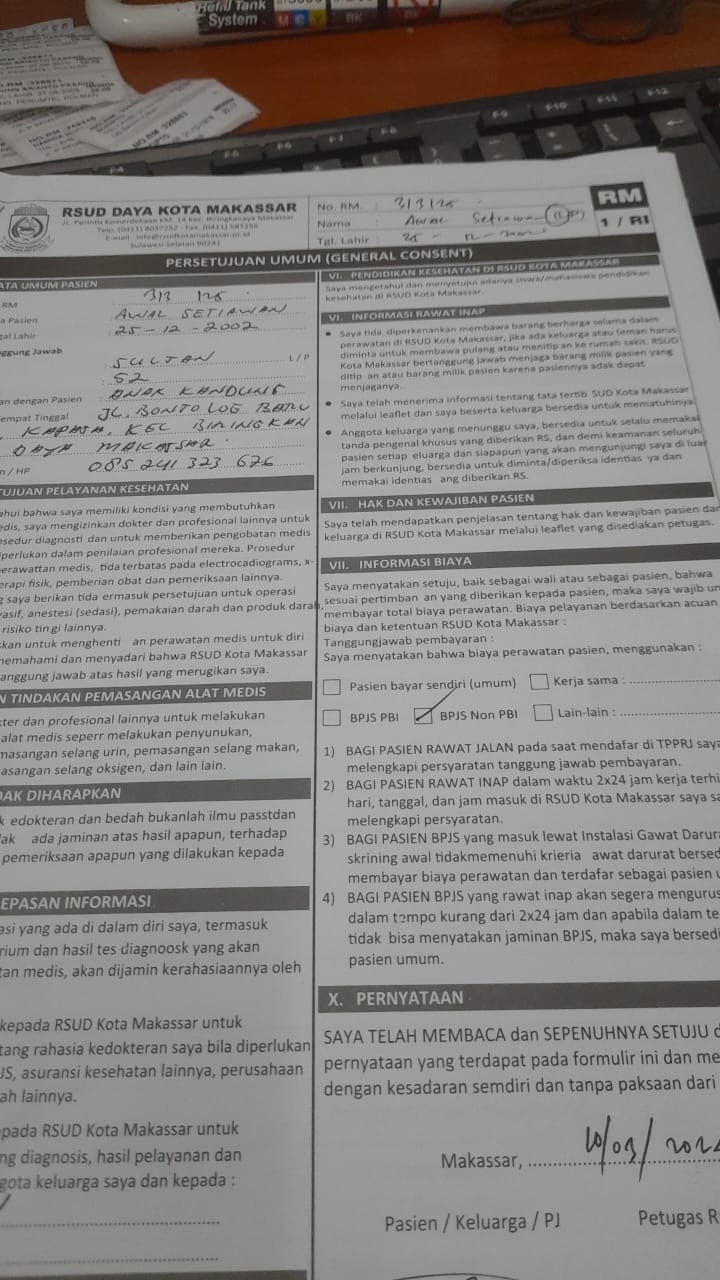 Refill Tank
System
M C Y BK BK
F4
F5
F6
F7
F8
F9
F10
F11
F12
RSUD DAYA KOTA MAKASSAR
Sulawesi Selatan 90241
No. RM. :
Nama : Awal Setiawan
Tgl. Lahir :
RM
1 / RI
PERSETUJUAN UMUM (GENERAL CONSENT)
ATA UMUM PASIEN
RM
a Pasien : AWAL SETIAWAN
gal Lahir : 25-12-2002
ggung Jawab
: SULTAN L/P
: 52
an dengan Pasien : ANAK KANDUNG
empat Tinggal JL. BONTO LOE BARU
KAPASA, KEC BIRINGKAN
DAYA MAKASSAR
n / HP : 085 241 323 626
TUJUAN PELAYANAN KESEHATAN
ahui bahwa saya memiliki kondisi yang membutuhkan
edis, saya mengizinkan dokter dan profesional lainnya untuk
osedur diagnosti dan untuk memberikan pengobatan medis
iperlukan dalam penilaian profesional mereka. Prosedur
erawattan medis, tida terbatas pada electrocadiograms, x-
erapi fisik, pemberian obat dan pemeriksaan lainnya.
g saya berikan tida ermasuk persetujuan untuk operasi
vasif, anestesi (sedasi), pemakaian darah dan produk darah,
risiko tin gi lainnya.
kan untuk menghenti an perawatan medis untuk diri
memahami dan menyadari bahwa RSUD Kota Makassar
anggung jawab atas hasil yang merugikan saya.
N TINDAKAN PEMASANGAN ALAT MEDIS
ter dan profesional lainnya untuk melakukan
alat medis seperr melakukan penyunukan,
masangan selang urin, pemasangan selang makan,
asangan selang oksigen, dan lain lain.
DAK DIHARAPKAN
k edokteran dan bedah bukanlah ilmu passtdan
lak ada jaminan atas hasil apapun, terhadap
pemeriksaan apapun yang dilakukan kepada
EPASAN INFORMASI
asi yang ada di dalam diri saya, termasuk
rium dan hasil tes diagnoosk yang akan
tan medis, akan dijamin kerahasiaannya oleh
kepada RSUD Kota Makassar untuk
tang rahasia kedokteran saya bila diperlukan
JS, asuransi kesehatan lainnya, perusahaan
ah lainnya.
pada RSUD Kota Makassar untuk
ng diagnosis, hasil pelayanan dan
gota keluarga saya dan kepada :
VI. PENDIDIKAN KESEHATAN DI RSUD KOTA MAKASSAR
Saya mengetahui dan menyetujui adanya siswa/mahasiswa pendidikan
kesehatan di RSUD Kota Makassar.
VI. INFORMASI RAWAT INAP
• Saya tida diperkenankan membawa barang berharga selama dalam
perawatan di RSUD Kota Makassar, jika ada keluarga atau teman harus
diminta untuk membawa pulang atau menitip an ke rumah sakit. RSUD
Kota Makassar bertanggung jawab menjaga barang milik pasien yang
ditip an atau barang milik pasien karena pasiennya adak dapat
menjaganya.
• Saya telah menerima informasi tentang tata tertib SUD Kota Makassar
melalui leaflet dan saya beserta keluarga bersedia untuk mematuhinya.
• Anggota keluarga yang menunggu saya, bersedia untuk selalu memakai
tanda pengenal khusus yang diberikan RS, dan demi keamanan seluruh
pasien setiap eluarga dan siapapun yang akan mengunjungi saya di luar
jam berkunjung, bersedia untuk diminta/diperiksa identias ya dan
memakai identias ang diberikan RS.
VII. HAK DAN KEWAJIBAN PASIEN
Saya telah mendapatkan penjelasan tentang hak dan kewajiban pasien dan
keluarga di RSUD Kota Makassar melalui leaflet yang disediakan petugas.
VII. INFORMASI BIAYA
Saya menyatakan setuju, baik sebagai wali atau sebagai pasien, bahwa
sesuai pertimban an yang diberikan kepada pasien, maka saya wajib un
membayar total biaya perawatan. Biaya pelayanan berdasarkan acuan
biaya dan ketentuan RSUD Kota Makassar :
Tanggungjawab pembayaran :
Saya menyatakan bahwa biaya perawatan pasien, menggunakan :
Pasien bayar sendiri (umum) Kerja sama :
BPJS PBI BPJS Non PBI Lain-lain :
1) BAGI PASIEN RAWAT JALAN pada saat mendafar di TPPRJ saya
melengkapi persyaratan tanggung jawab pembayaran.
2) BAGI PASIEN RAWAT INAP dalam waktu 2x24 jam kerja terhi
hari, tanggal, dan jam masuk di RSUD Kota Makassar saya sa
melengkapi persyaratan.
3) BAGI PASIEN BPJS yang masuk lewat Instalasi Gawat Darura
skrining awal tidakmemenuhi krieria awat darurat bersed
membayar biaya perawatan dan terdafar sebagai pasien u
4) BAGI PASIEN BPJS yang rawat inap akan segera mengurus
dalam tempo kurang dari 2x24 jam dan apabila dalam te
tidak bisa menyatakan jaminan BPJS, maka saya bersedi
pasien umum.
X. PERNYATAAN
SAYA TELAH MEMBACA dan SEPENUHNYA SETUJU d
pernyataan yang terdapat pada formulir ini dan me
dengan kesadaran semdiri dan tanpa paksaan dari
Makassar, 10/03/2024
Pasien / Keluarga / PJ Petugas R